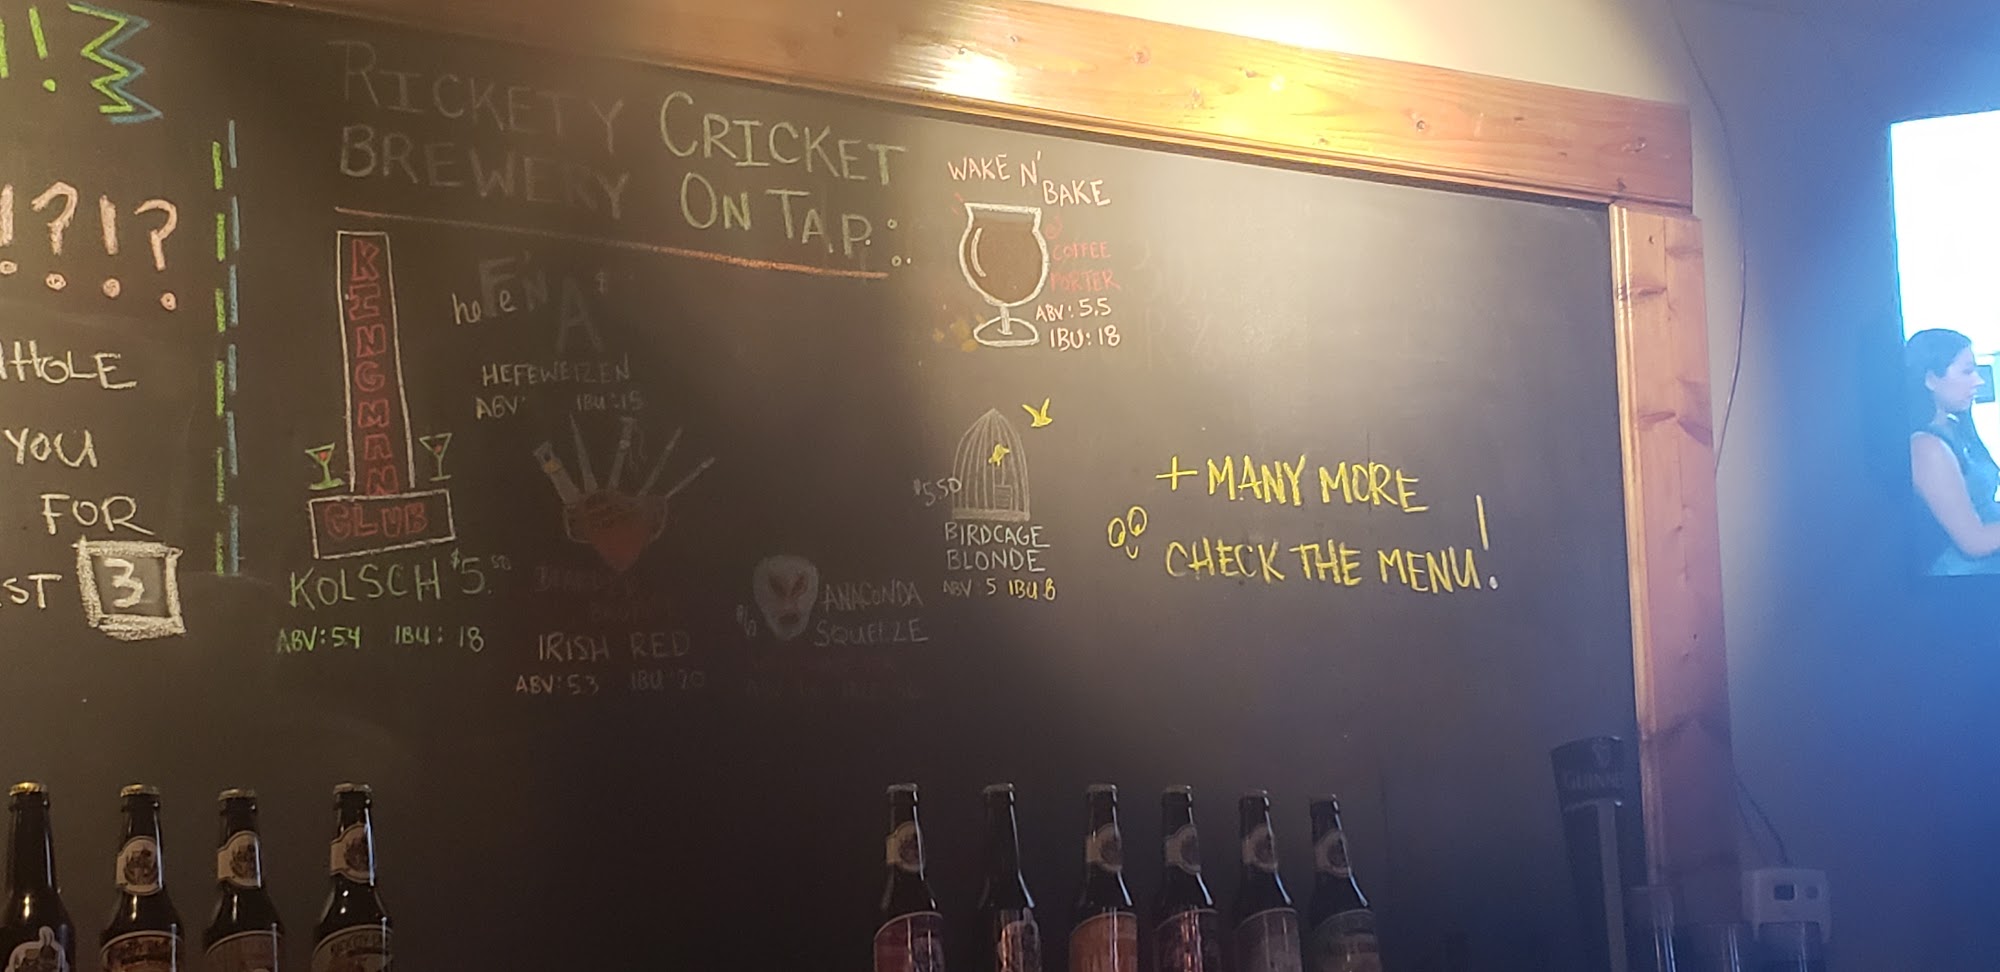 !!
!?!?
HOLE
YOU
FOR
ST 3
RICKETY CRICKET
BREWERY ON TAP:
KINGMAN
CLUB
KOLSCH $5.50
ABV: 5.4 IBU: 18
HEFEWEIZEN
ABV: IBU: 15
IRISH RED
ABV: 5.3 IBU 20
ANACONDA
SQUEEZE
WAKE N'
BAKE
COFFEE
PORTER
ABV: 5.5
IBU: 18
$5.50
BIRDCAGE
BLONDE
ABV 5 IBU 8
+ MANY MORE
CHECK THE MENU!
GUINNE